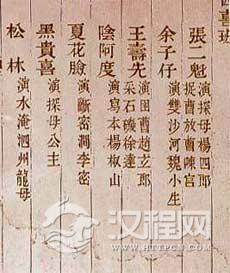 喜班
張二魁 演探母楊四郎
捉曹放曹陳宮
余子仔 演雙沙河魏小生
王壽先 演困曹趙玄郎
采石磯徐達
陰阿度 演寫本楊椒山
夏花臉 演斷密澗李密
黑貴喜 演探母公主
松林 演水淹泗州龍母
汉程网
HTTPCN.COM